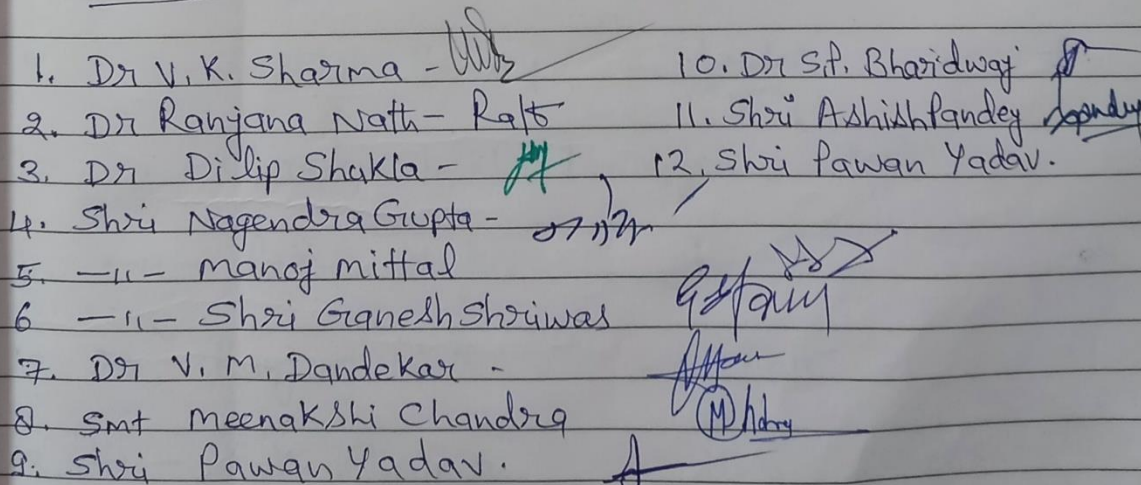 1. Dr V. K. Sharma -
2. Dr Ranjana Nath -
3. Dr Dilip Shakla -
4. Shri Nagendra Gupta -
5. —11— Manoj mittal
6 —11— Shri Ganesh Shriwas
7. Dr V. M. Dandekar -
8. Smt Meenakshi Chandra
9. Shri Pawan Yadav.
10. Dr S.P. Bharidwaj
11. Shri Ashish Pandey
12. Shri Pawan Yadav.